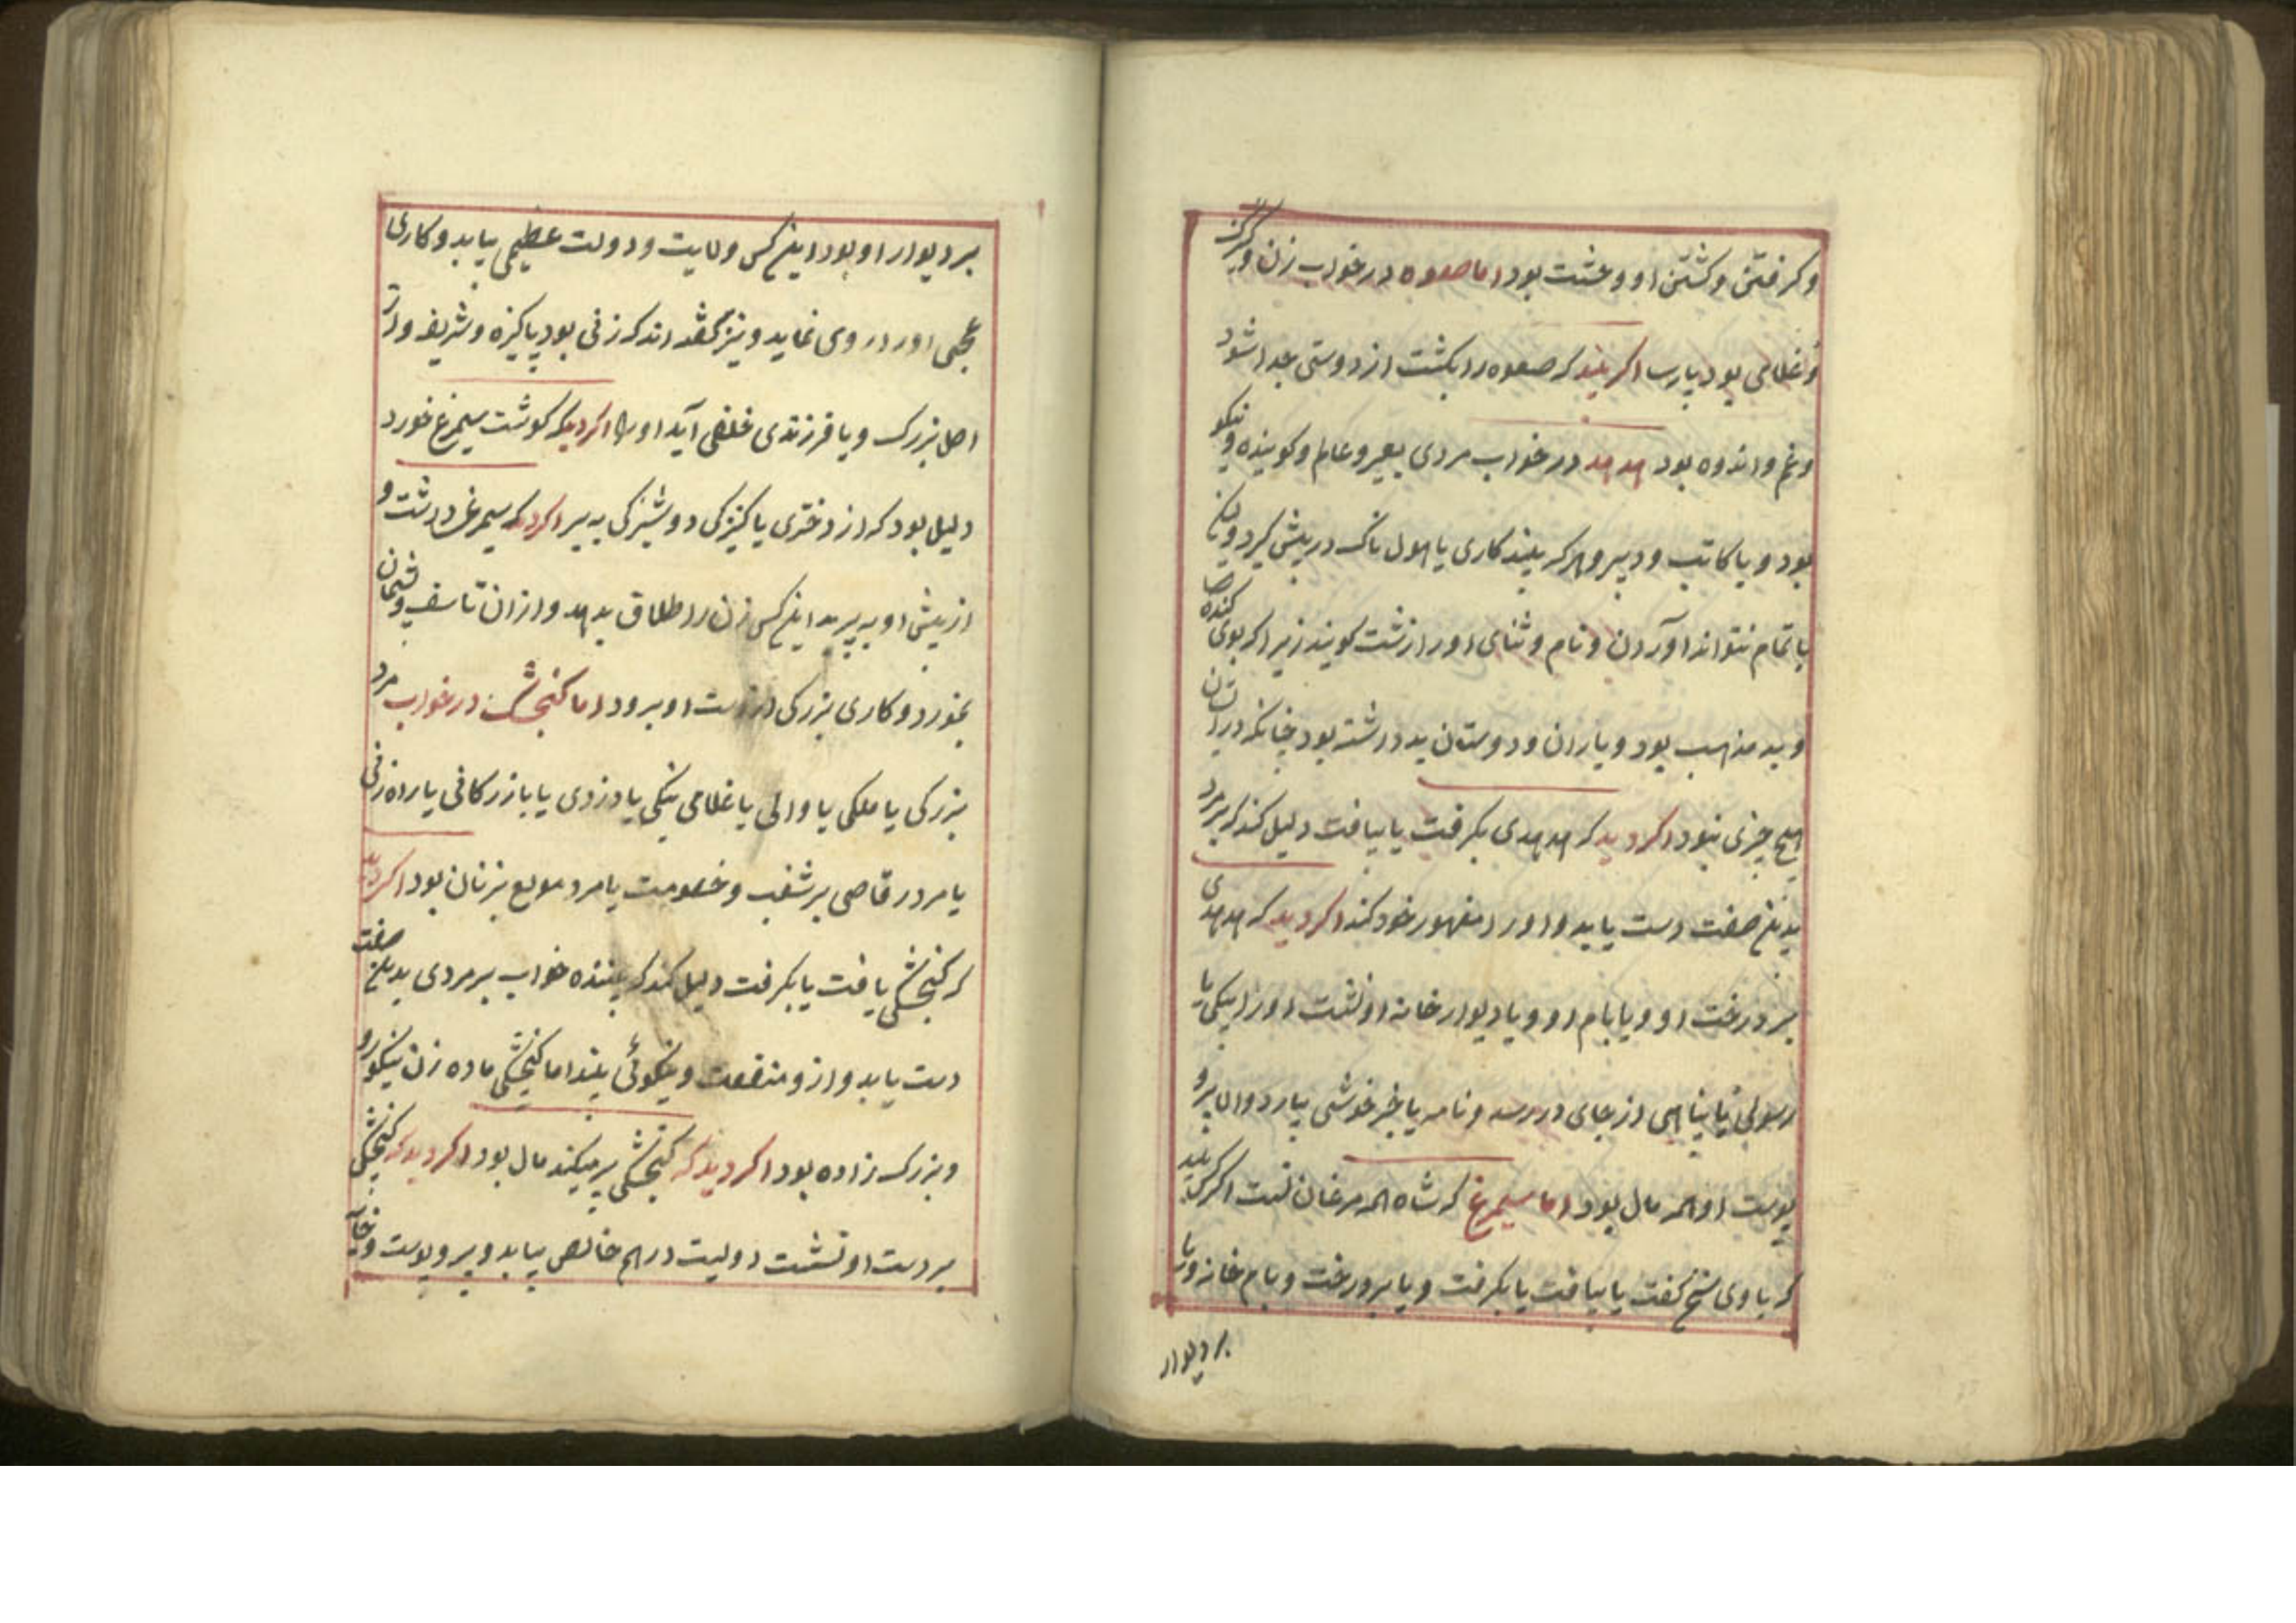 وکرفتن وکشتن او وعشت بود اما صعوه در خواب زن و کنیزک
و غلامی بود پارسا اکر بیند که صعوه را بکشت از دوستی جدا شود
و غم و اندوه بود هدهد در خواب مردی بصیر و عالم و کوینده و نیکو
بود و یا کاتب و دبیر و هرکه بیند کاری یا هول ناک در پیش کیرد و بآن
باتمام نتواند آوردن و نام و ثنای او را زشت کویند زیرا که بوی کنده
و بد مذهب بود و یاران و دوستان بد داشته بود چنانکه در
هیچ چیزی نبود اکر دید که هدهدی بکرفت یا بیافت دلیل کند که بر مرد
بدینغ صفت دست یابد و او را مقهور خود کند اکر دید که هدهدی
بر درخت او و یا بام او و یا دیوار خانه او نشست او را پیکی یا
رسولی یا از جای در رسد و نامه یا خبر خوشی بیارد و اما پر و
پوست او همه مال بود اما سیمرغ که شاه همه مرغان است اکر کسی بیند
که با وی سخن کفت یا بیافت یا بکرفت و یا بر درخت و بام خانه و یا
بر دیوار
بر دیوار او بود اینغ کس ولایت و دولت عظیمی بیابد و کاری
عجبی او را روی نماید و نیز کفته اند که زنی بود پاکیزه و شریف و از
اصل بزرک و یا فرزندی خلفی آید او را اکر دید که کوشت سیمرغ خورد
دلیل بود که از دختری یا کنیزکی دوشیزکی ببرد اکر دید که سیمرغ داشت و
از پیش او بپرید اینغ کس زن را طلاق بدهد و از ان تاسف و پشیمان
بخورد و کاری بزرکی از دست او برود اما کنجشک در خواب مرد
بزرکی یا ملکی یا والی یا غلامی نیکی یا دزدی یا بازرکانی یا راه زنی
یا مرد رقاصی پر شغب و خصومت یا مرد مولع بزنان بود اکر دید
که کنجشکی یافت یا بکرفت دلیل کند که بیننده خواب بر مردی بدینغ صفت
دست یابد و از و منفعت و نیکوئی بیند اما کنجشکی ماده زن نیکو رو
و بزرک زاده بود اکر دید که کنجشکی پر میکند مال بود اکر دید که کنجشکی
بر دست او نشست دولیت درهم خالص بیابد و پر و پوست و